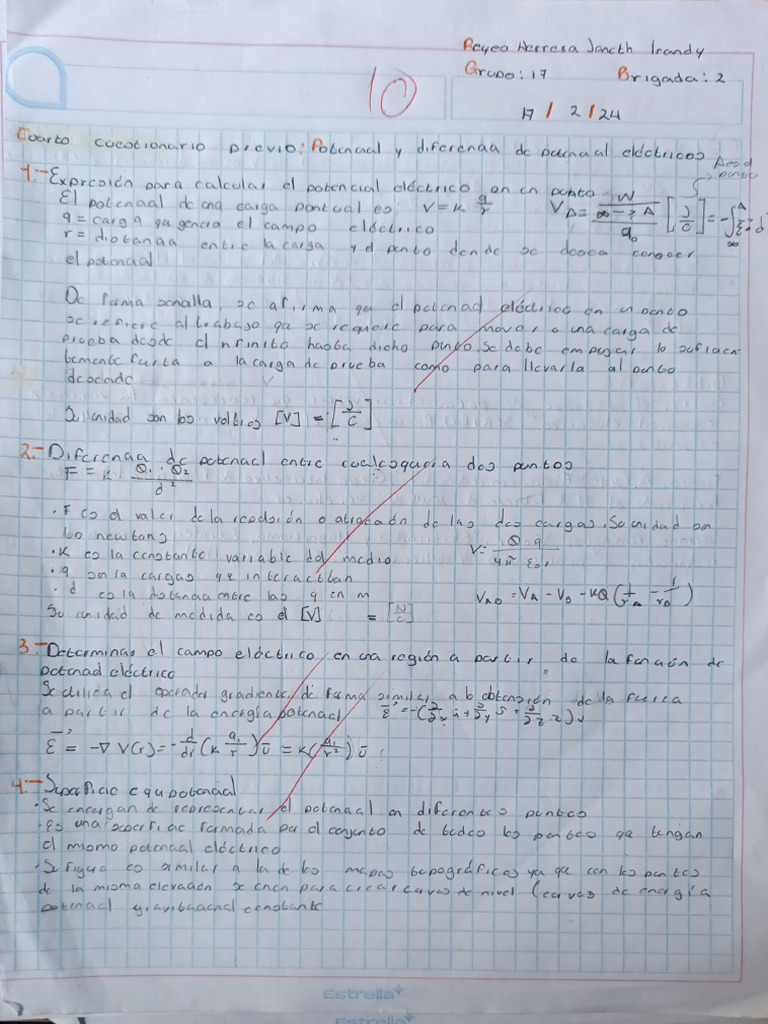 Reyes Herrera Janeth Irandy
Grupo: 17 Brigada: 2
10
17 / 2 / 24
Cuarto cuestionario previo: Potencial y diferencia de potencial eléctricos
1.- Expresión para calcular el potencial eléctrico en un punto
El potencial de una carga puntual es: V = K q/r
V_A = W ∞→A / q₀ [J/C] = -∫
q = carga que genera el campo eléctrico
r = distancia entre la carga y el punto donde se desea conocer
el potencial
De forma sencilla, se afirma que el potencial eléctrico en un punto
se refiere al trabajo que se requiere para mover a una carga de
prueba desde el infinito hasta dicho punto. Se debe empujar lo suficien-
temente fuerte a la carga de prueba como para llevarla al punto
deseado
Su unidad son los voltios [V] = [J/C]
2.- Diferencia de potencial entre cualesquiera dos puntos
F = K Q₁ · Q₂ / d²
· F es el valor de la repulsión o atracción de las dos cargas. Su unidad son
los newtons
· K es la constante variable del medio
V = Q q / 4π ε₀ r
· q son la cargas que interactúan
· d es la distancia entre las q en m
V_AB = V_A - V_B - KQ (1/r_A - 1/r_B)
Su unidad de medida es el [V] = [N/C]
3.- Determinar el campo eléctrico en una región a partir de la función de
potencial eléctrico
Se utiliza el operador gradiente, de forma similar a la obtención de la fuerza
a partir de la energía potencial
E = -∇ V(r) = -d/dr (K q₁/r) û = K (q₁/r²) û
4.- Superficie equipotencial
· Se encargan de representar el potencial en diferentes puntos
· Es una superficie formada por el conjunto de todos los puntos que tengan
el mismo potencial eléctrico
· Su figura es similar a la de los mapas topográficos ya que con los puntos
de la misma elevación se unen para crear curvas de nivel (curvas de energía
potencial gravitacional constante
Estrella
Estrella